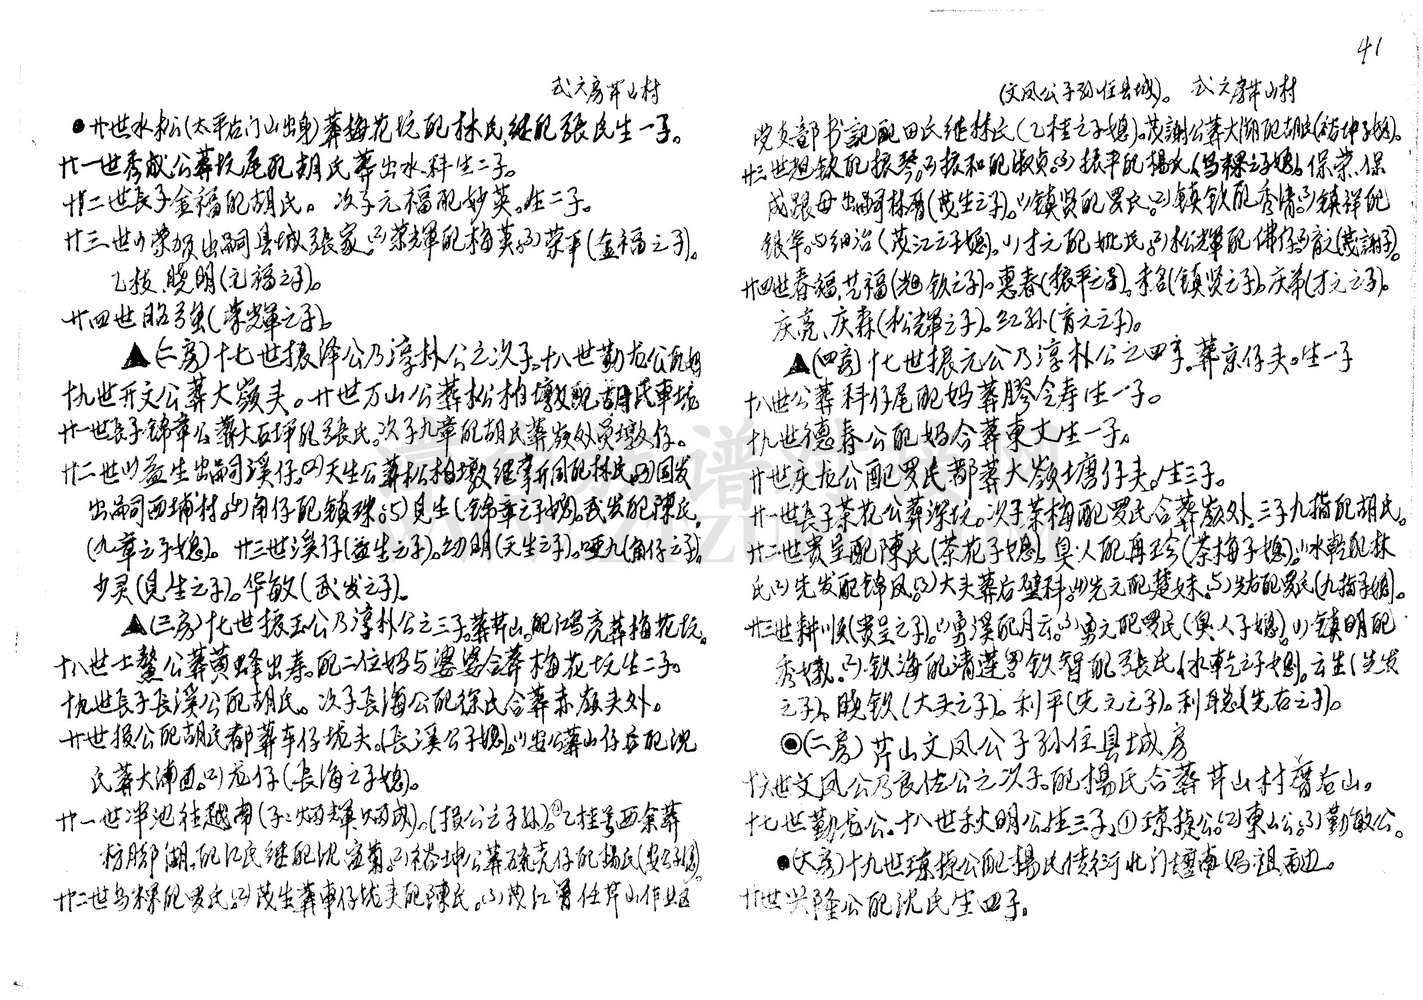 41
式六房芹山村
●廿世水松(太平右门山出身)葬梅花坑配林氏,继配張氏生一子。
廿一世秀成公葬坑尾配胡氏葬出水科生二子。
廿二世長子金福配胡氏。次子元福配妙英。生二子。
廿三世⑴荣发出嗣县城張家。⑵荣輝配梅英。⑶荣平(金福之子)。
乙枝、曉明(元福之子)。
廿四世昭强(荣輝之子)。
▲(二房)十七世振泽公乃淳朴公之次子。十八世勤龙公配妈
十九世开文公葬大嶺头。廿世万山公葬松柏墩配胡氏車坑
廿一世長子錦章公葬大石坪配張氏。次子九章配胡氏葬嶺外員墩仔。
廿二世⑴益生出嗣溪仔。⑵天生公葬松柏墩继掌开同配林氏。⑶回发
出嗣西埔村。⑷角仔配镇珠。⑸見生(錦章之子媳)。武发配陳氏,
(九章之子媳)。廿三世溪仔(益生之子)。幼明(天生之子)。哑九(角仔之子)。
少灵(見生之子)。华敏(武发之子)。
▲(三房)十七世振玉公乃淳朴公之三子。葬芹山。配冯亮葬梅花坑。
十八世士鰲公葬黄蜂出寿。配二位妈与婆婆合葬梅花坑生二子。
十九世長子長溪公配胡氏。次子長海公配徐氏合葬赤嶺头外。
廿世损公配胡氏都葬车仔坑头。(長溪公子媳)。⑴安公葬山仔后配沈
氏葬大浦面。⑵龙仔(長海之子媳)。
廿一世冲池往越南(子:炳輝、炳成)。(损公之子孙)。⑴乙桂号西余葬
枋脚湖。配江氏继配沈宝菊。⑵裕坤公葬硗壳仔配楊氏(安公子媳)。
廿二世乌粿配罗氏。⑵茂生葬車仔坑头配陳氏。⑶茂江曾任芹山作业区
(文凤公子孙住县城)。 式六房芹山村
党支部书記配田氏继林氏(乙桂之子媳)。茂謝公葬大湖配胡氏(裕坤子媳)。
廿三世翘钦配振琴。⑵振和配淑贞。⑶振平配楊氏(乌粿之子媳)。保荣、保
成跟母出嗣林厝(茂生之子)。⑴镇贤配罗氏。⑵镇钦配秀清。⑶镇祥配
银华。⑷细治(茂江之子媳)。⑴才元配姚氏。⑵松輝配佛仔。⑶育元(茂謝子)。
廿四世春福、芝福(翘钦之子)。惠春(振平之子)。来名(镇贤之子)。庆弟(才元之子)。
庆亮、庆森(松輝之子)。红孙(育元之子)。
▲(四房)十七世振元公乃淳朴公之四子。葬京仔头。生一子
十八世公葬科仔尾配妈葬膠仓寿生一子。
十九世德春公配妈合葬東文生一子。
廿世庆龙公配罗氏都葬大嶺塘仔头。生三子。
廿一世長子茶花公葬深坑。次子茶梅配罗氏合葬嶺外。三子九指配胡氏。
廿二世贵呈配陳氏(茶花子媳)。臭人配再珍(茶梅子媳)。⑴水乾配林
氏。⑵先发配錦凤。⑶大头葬后壁科。⑷先元配楚妹。⑸先右配罗氏(九指子媳)。
廿三世耕順(贵呈之子)。⑴勇溪配月云。⑵勇元配罗氏(臭人子媳)。⑴镇明配
秀娥。⑵钦海配清蓮。⑶钦智配張氏(水乾之子媳)。云生(先发
之子)。曉钦(大头之子)。利平(先元之子)。利聪(先右之子)。
◉(二房)芹山文凤公子孙住县城房
十六世文凤公乃良佐公之次子。配楊氏合葬芹山村厝右山。
十七世勤龙公。十八世秋明公生三子。⑴琼捷公。⑵東山公。⑶勤敏公。
●(大房)十九世琼捷公配楊氏住衙北门壇南妈祖西边。
廿世兴隆公配沈氏生四子。